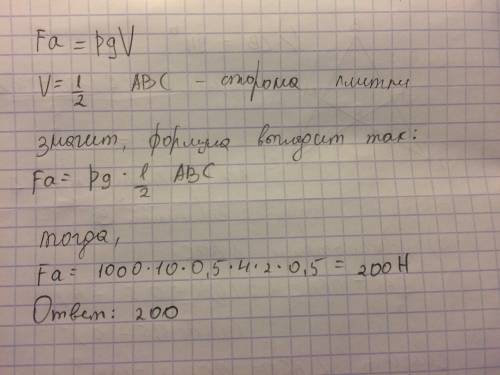 Fa = ρgV
V = 1/2 ABC – сторона плитки
значит, формула выглядит так:
Fa = ρg · 1/2 ABC
тогда,
Fa = 1000·10·0,5·4·2·0,5 = 200 Н
Ответ: 200